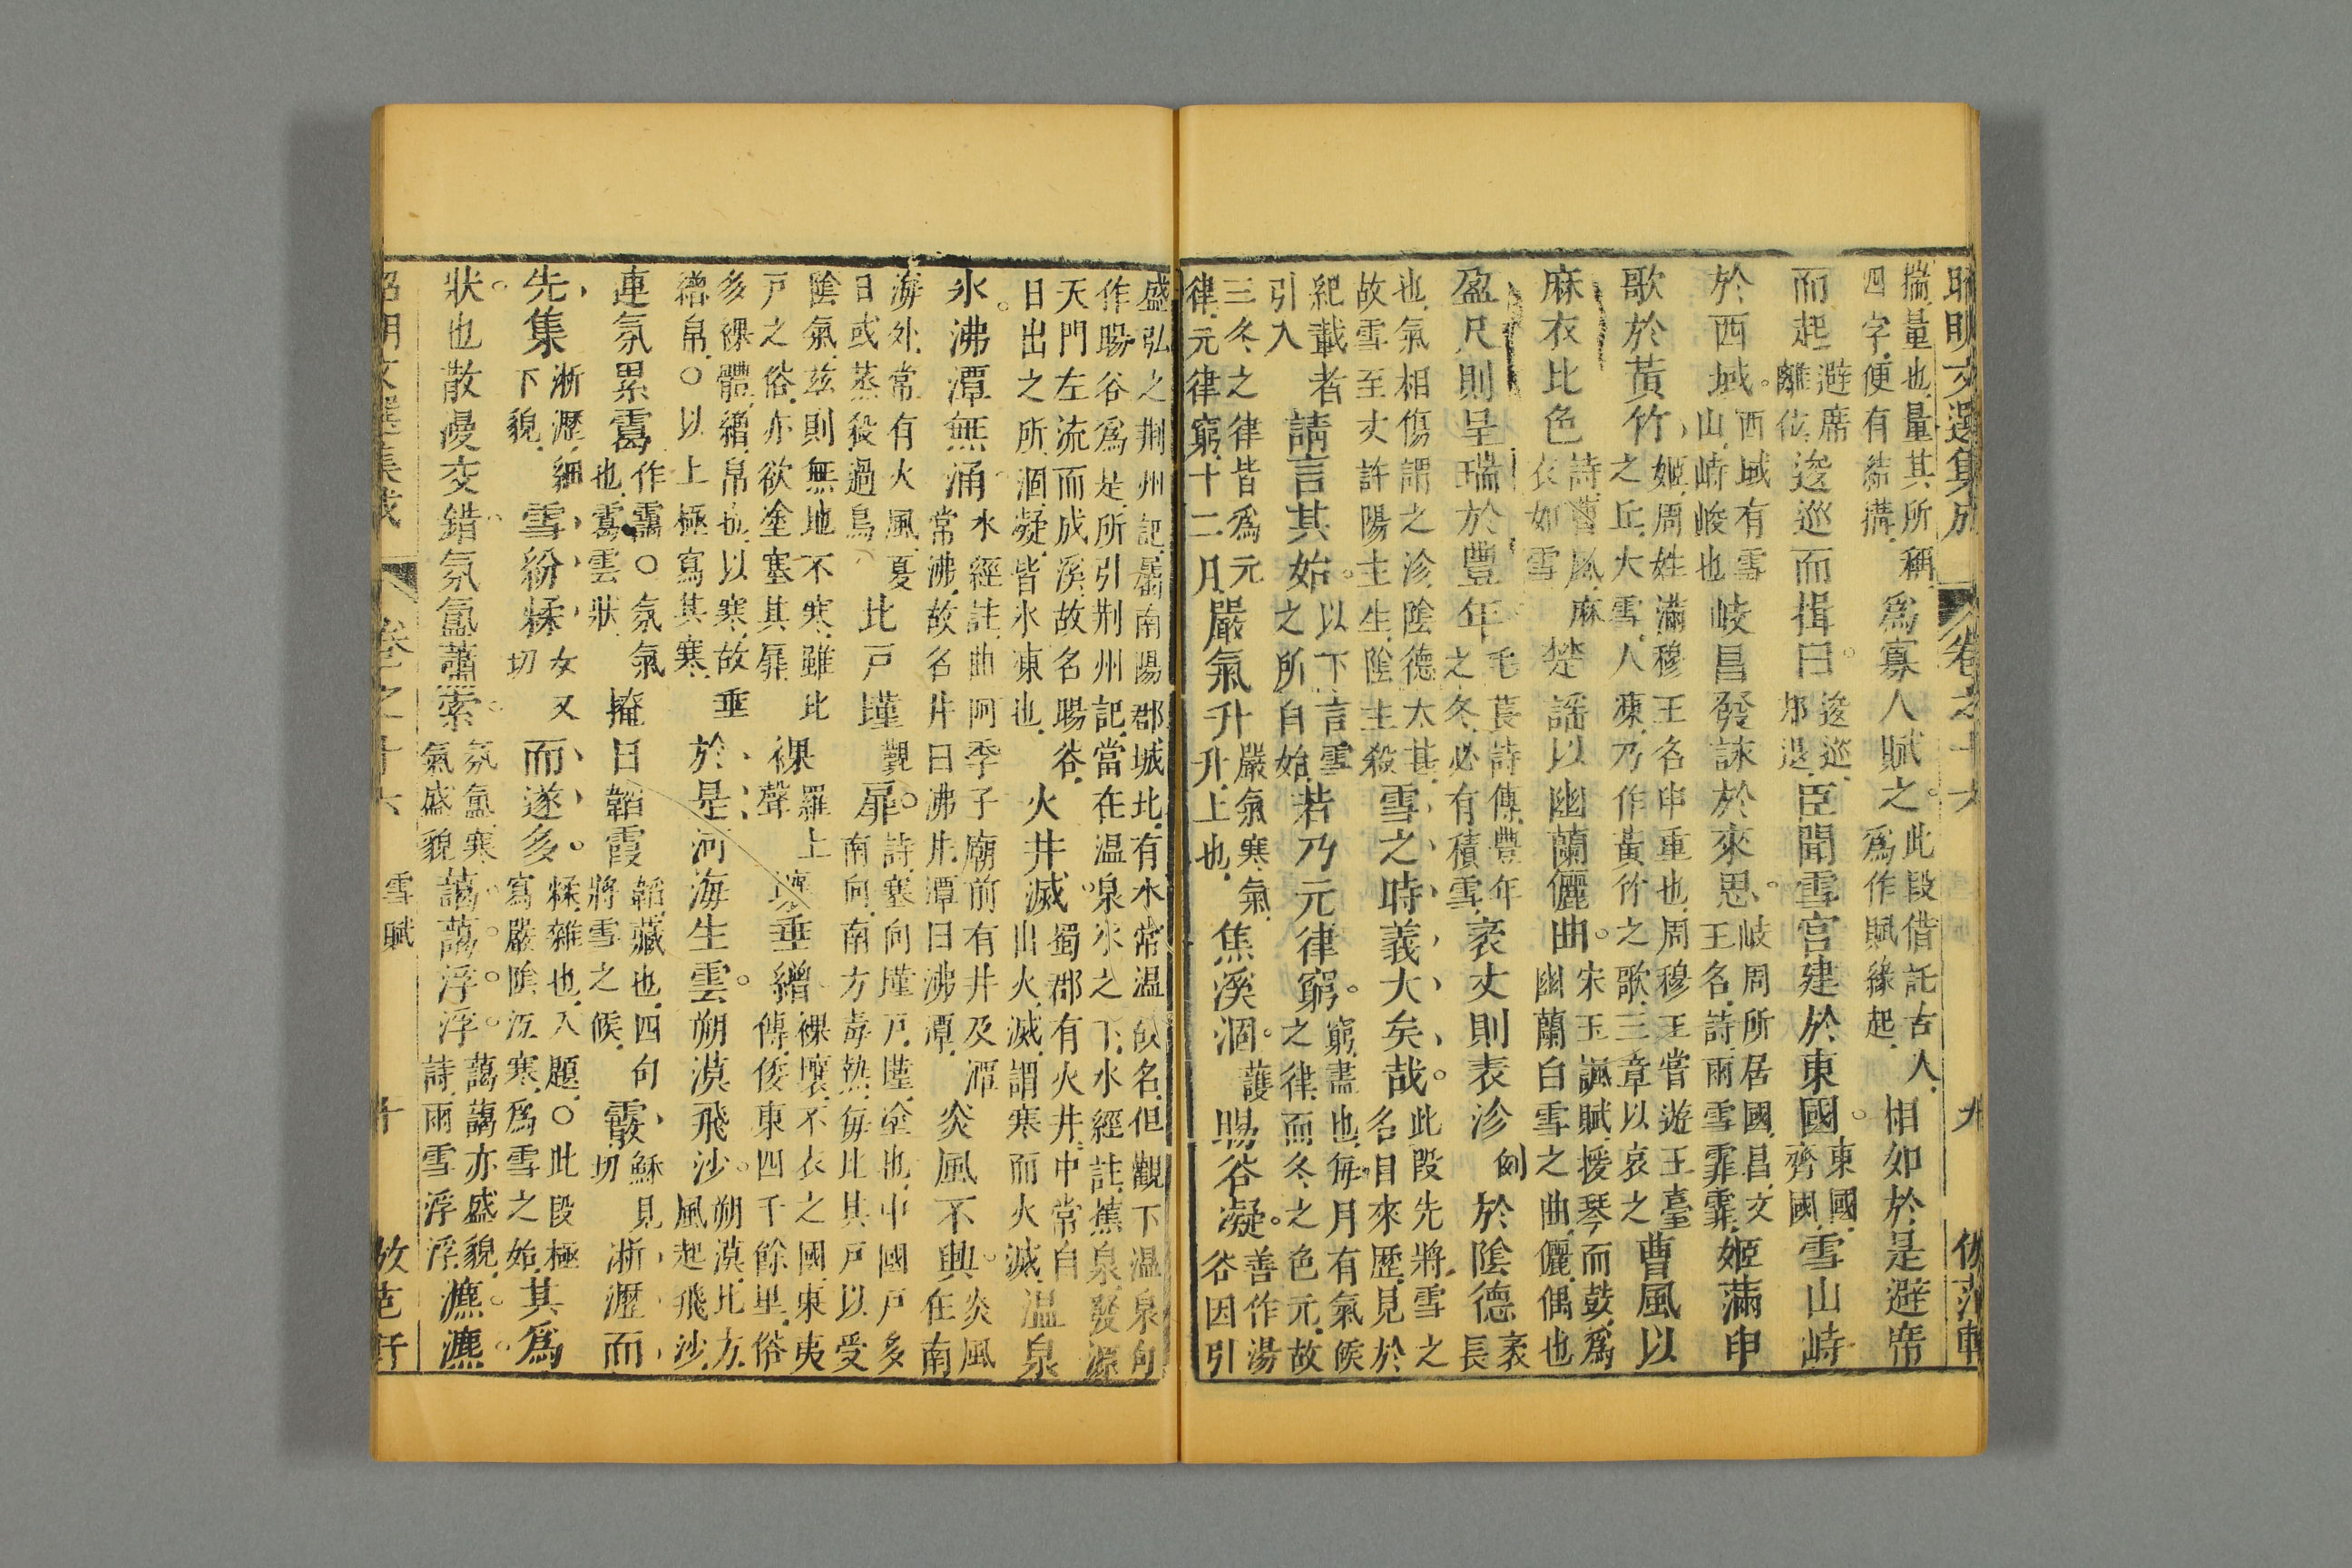 昭明文選集成 卷之十六 九 倣范軒
揣量也量其所稱爲寡人賦之此段借託古人相如於是避席
四字便有結搆爲作賦緣起
而起避席離位逡巡而揖曰逡巡郤退臣聞雪宮建於東國東國齊國雪山峙
於西域西域有雪山峙峻也岐昌發詠於來思岐周所居國昌文王名詩雨雪霏霏姬滿申
歌於黃竹姬周姓滿穆王名申重也周穆王嘗遊王臺之丘大雪人凍乃作黃竹之歌三章以哀之曹風以
麻衣比色詩曹風麻衣如雪楚謡以幽蘭儷曲宋玉諷賦援琴而鼓爲幽蘭白雪之曲儷偶也
盈尺則呈瑞於豐年毛萇詩傳豐年之冬必有積雪袤丈則表沴例於陰德袤長
也氣相傷謂之沴陰德太甚故雪至丈許陽主生陰主殺雪之時義大矣哉此段先將雪之名目來歷見於
紀載者引入請言其始以下言雪之所自始若乃元律窮窮盡也每月有氣候之律而冬之色元故
三冬之律皆爲元律元律窮十二月嚴氣升嚴氣寒氣升上也焦溪涸護暘谷凝善作湯谷因引
盛弘之荆州記屬南陽郡城北有水常温故名但觀下温泉句
作暘谷爲是所引荆州記當在温泉水之下水經註蕉泉發源
天門左流而成溪故名暘谷火井滅蜀郡有火井中常自
日出之所涸凝皆氷凍也出火滅謂寒而火滅温泉
氷沸潭無涌水經註曲阿季子廟前有井及潭常沸故名井曰沸井潭曰沸潭炎風不興炎風在南
海外常有火風夏日或蒸殺過鳥北戸墐覲扉詩塞向墐戸墐塗也中國戸多南向南方毒熱每比其戸以受
陰氣兹則無地不寒雖北戸之俗亦欲塗塞其扉裸羅上聲壤垂繒裸壤不衣之國東夷傳倭東四千餘里俗
多裸體繒帛也以寒故垂繒帛○以上極寫其寒於是河海生雲朔漠飛沙朔漠北方風起飛沙
連氛累靄作靄○氛氣也靄雲狀揜日韜霞韜藏也四句將雪之候霰穌見切淅瀝而
先集淅瀝細下貌雪紛糅女又切而遂多糅雜也入題○此段極寫嚴陰沍寒爲雪之始其爲
狀也散漫交錯氛氳蕭索氛氳寒氣盛貌藹藹浮浮藹藹亦盛貌詩雨雪浮浮瀌瀌
昭明文選集成 卷之十六 雪賦 十 倣范軒